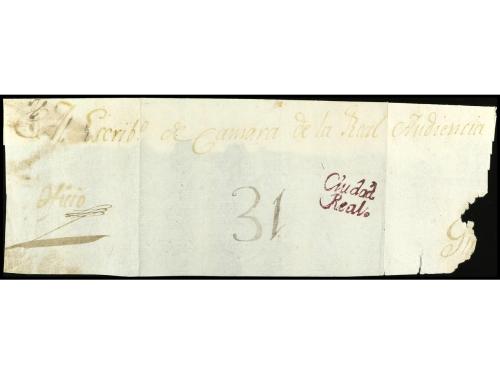 Escribº. de Camara de la Real Audiencia
Oficio
31
Ciudad
Real.